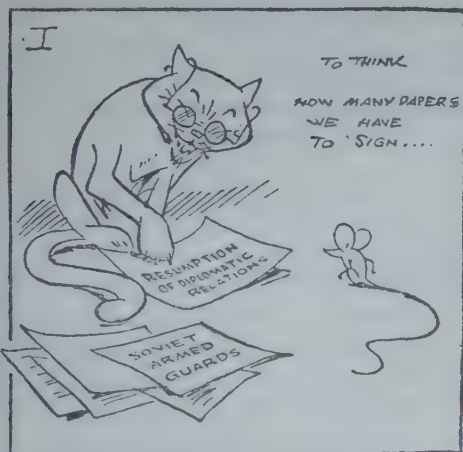 I
TO THINK
HOW MANY PAPERS
WE HAVE
TO SIGN....
RESUMPTION
OF DIPLOMATIC
RELATIONS
SOVIET
ARMED
GUARDS